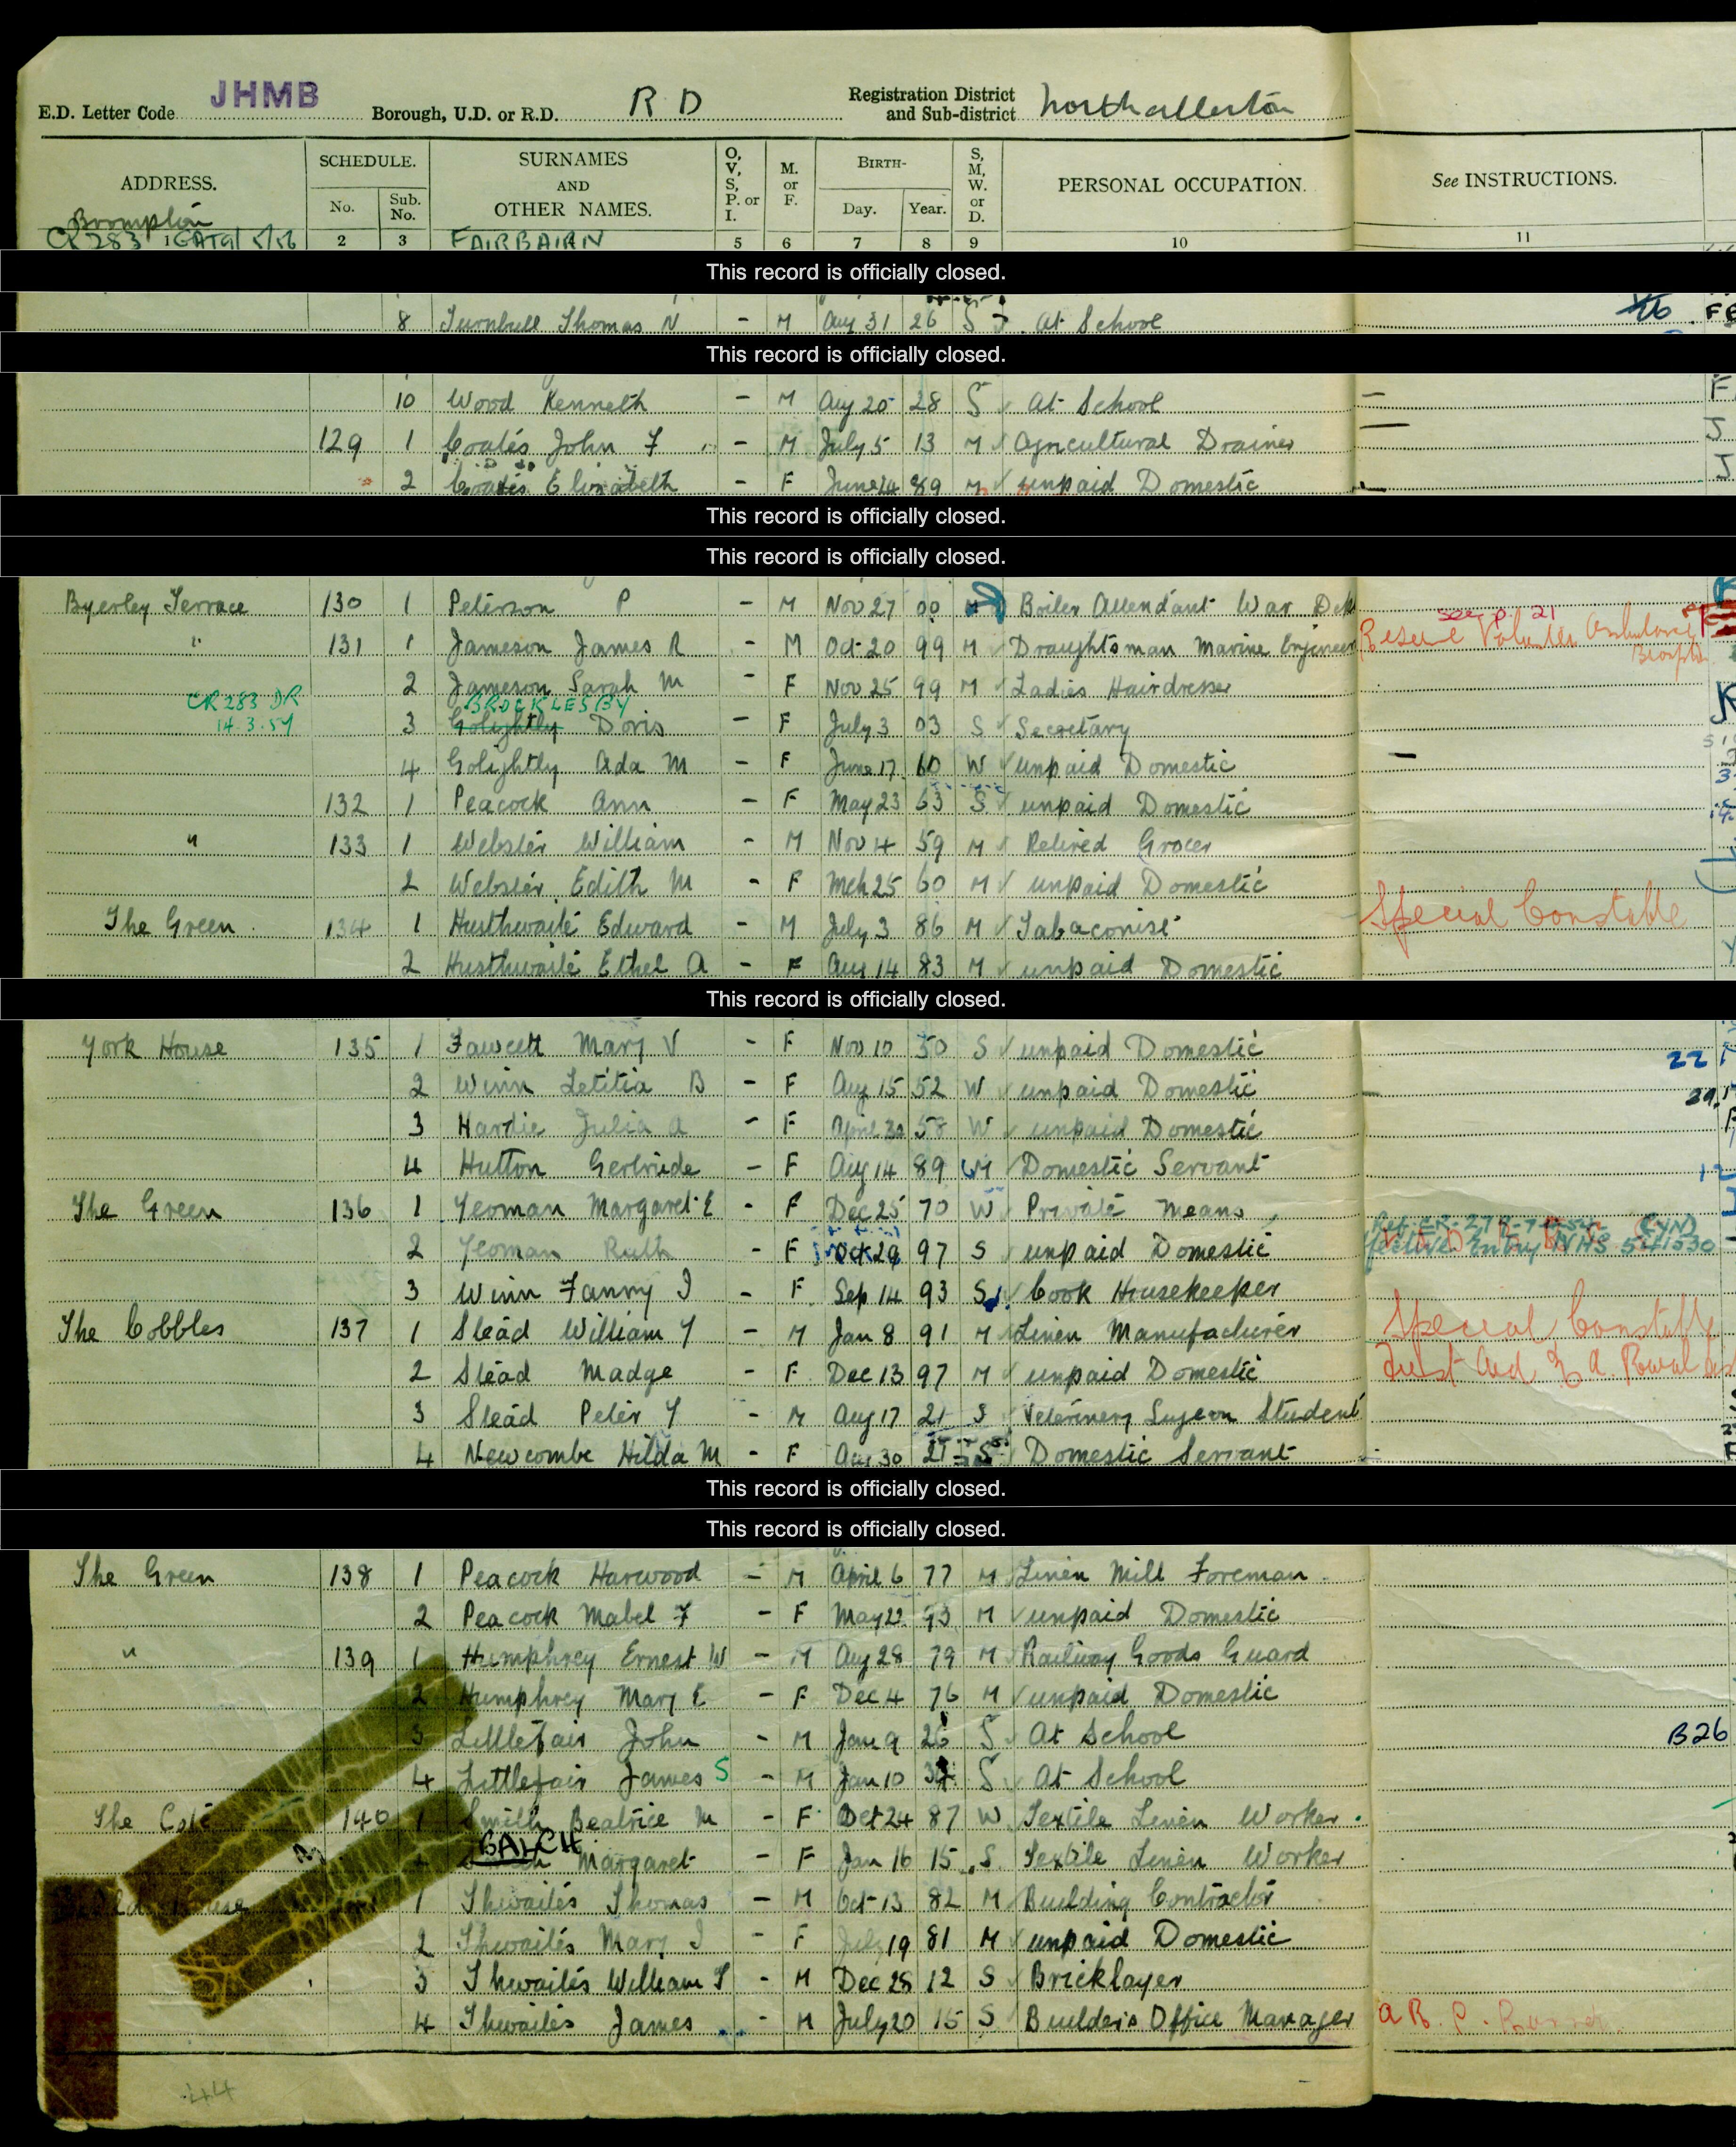 E.D. Letter Code JHMB Borough, U.D. or R.D. R D Registration District and Sub-district Northallerton
ADDRESS. SCHEDULE. No. Sub. No. SURNAMES AND OTHER NAMES. O, V, S, P. or I. M. or F. BIRTH- Day. Year. S, M, W. or D. PERSONAL OCCUPATION. See INSTRUCTIONS.
Brompton
CR 283 1 2 3 FAIRBAIRN 5 6 7 8 9 10 11
This record is officially closed.
8 Turnbull Thomas N - M Aug 31 26 S At School
This record is officially closed.
10 Wood Kenneth - M Aug 20 28 S At School
129 1 Coates John F - M July 5 13 M Agricultural Drainer
2 Coates Elizabeth - F June 24 89 M unpaid Domestic
This record is officially closed.
This record is officially closed.
Byerley Terrace 130 1 Peterson P - M Nov 27 00 Boiler Attendant War see p. 21
" 131 1 Jameson James R - M Oct 20 99 M Draughtsman Marine Engineer Volunteer Ambulance
2 Jameson Sarah M - F Nov 25 99 M Ladies Hairdresser
CR 283 DR BROCKLESBY
14.3.57 3 Golightly Doris - F July 3 03 S Secretary
4 Golightly Ada M - F June 17 60 W unpaid Domestic
132 1 Peacock Ann - F May 23 63 S unpaid Domestic
" 133 1 Webster William - M Nov 4 59 M Retired Grocer
2 Webster Edith M - F Mch 25 60 M unpaid Domestic
The Green 134 1 Husthwaite Edward - M July 3 86 M Tabaconist Special Constable
2 Husthwaite Ethel A - F Aug 14 83 M unpaid Domestic
This record is officially closed.
York House 135 1 Fawcett Mary V - F Nov 10 50 S unpaid Domestic 22
2 Winn Letitia B - F Aug 15 52 W unpaid Domestic
3 Hardie Julia A - F April 30 58 W unpaid Domestic
4 Hutton Gertrude - F Aug 14 89 M Domestic Servant
The Green 136 1 Yeoman Margaret E - F Dec 25 70 W Private Means
2 Yeoman Ruth - F Oct 29 97 S unpaid Domestic Entry NHS
3 Winn Fanny I - F Sep 14 93 S Cook Housekeeper
The Cobbles 137 1 Stead William Y - M Jan 8 91 M Linen Manufacturer Special Constable
2 Stead Madge - F Dec 13 97 M unpaid Domestic First Aid
3 Stead Peter Y - M Aug 17 21 S Veterinery Surgeon Student
4 Newcombe Hilda M - F Aug 30 21 S Domestic Servant
This record is officially closed.
This record is officially closed.
The Green 138 1 Peacock Harwood - M April 6 77 M Linen Mill Foreman
2 Peacock Mabel F - F May 22 93 M unpaid Domestic
" 139 1 Humphrey Ernest W - M Aug 28 79 M Railway Goods Guard
2 Humphrey Mary E - F Dec 4 76 M unpaid Domestic
3 Littlefair John - M Jan 9 26 S At School B26
4 Littlefair James S - M Jan 10 S At School
The 140 1 Smith Beatrice M - F Oct 24 87 W Textile Linen Worker
BALCH
Margaret - F Jan 16 15 S Textile Linen Worker
1 Thwaites Thomas - M Oct 13 82 M Building Contractor
2 Thwaites Mary I - F July 19 81 M unpaid Domestic
3 Thwaites William T - M Dec 28 12 S Bricklayer
4 Thwaites James - M July 20 15 S Builders Office Manager
44